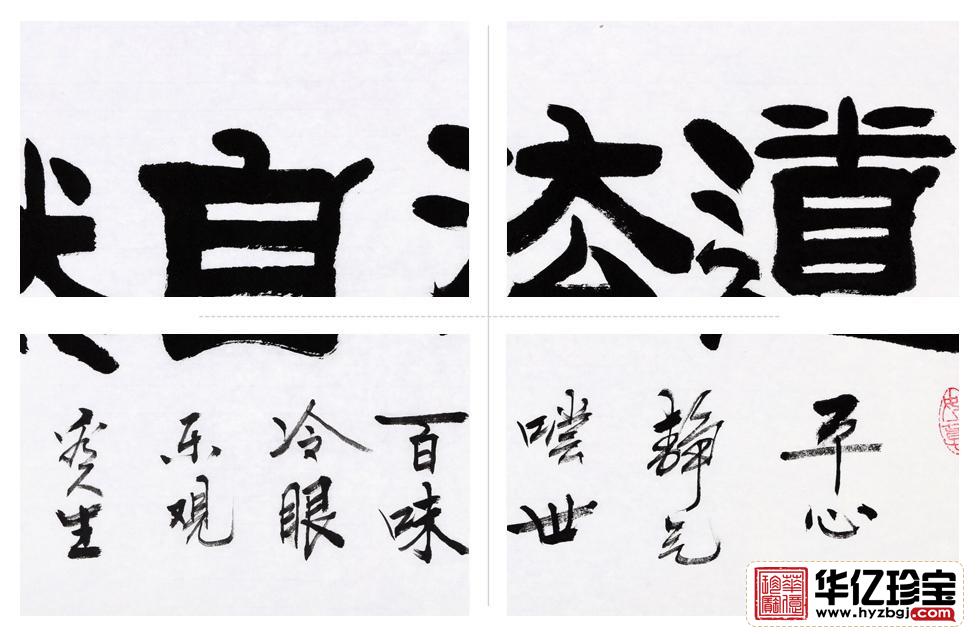 道法自然
平心
静气
嚐世
百味
冷眼
乐观
人生
华亿珍宝
www.hyzbgj.com